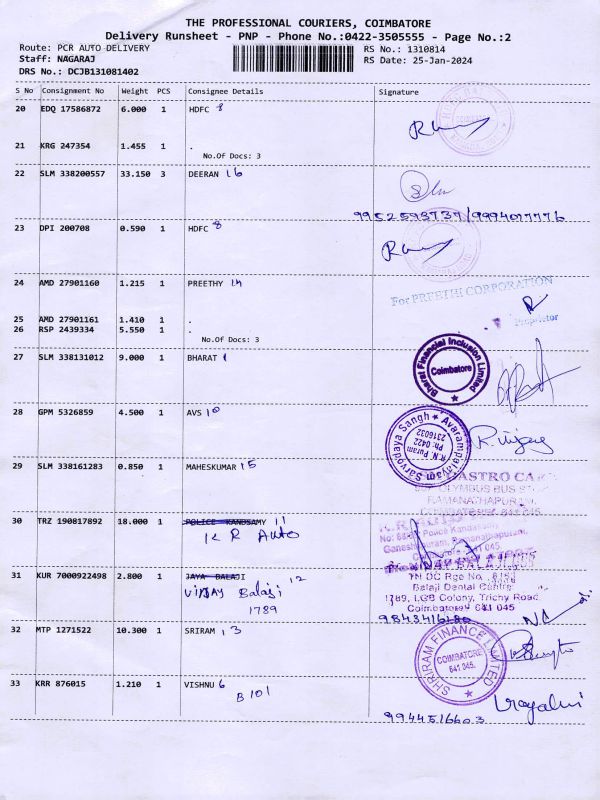 THE PROFESSIONAL COURIERS, COIMBATORE
Delivery Runsheet - PNP - Phone No.:0422-3505555 - Page No.:2
Route: PCR AUTO DELIVERY
RS No.: 1310814
Staff: NAGARAJ
RS Date: 25-Jan-2024
DRS No.: DCJB131081402
S No Consignment No Weight PCS Consignee Details Signature
20 EDQ 17586872 6.000 1 HDFC 8
21 KRG 247354 1.455 1 .
No.Of Docs: 3
22 SLM 338200557 33.150 3 DEERAN 16
23 DPI 200708 0.590 1 HDFC 8
24 AMD 27901160 1.215 1 PREETHY 14
For PREETHI CORPORATION
Proprietor
25 AMD 27901161 1.410 1 .
26 RSP 2439334 5.550 1 .
No.Of Docs: 3
27 SLM 338131012 9.000 1 BHARAT 1
Bharat Financial Inclusion Limited
Coimbatore
28 GPM 5326859 4.500 1 AVS 10
Sarvodaya Sangh Avarampalayam
R.N. Puram
Ph: 0422
2316032
29 SLM 338161283 0.850 1 MAHESKUMAR 15
ASTRO CA
BUS
RAMANATHAPURAM,
30 TRZ 190817892 18.000 1 POLICE KANDSAMY 11
K R Auto
31 KUR 7000922498 2.800 1 JAYA BALAJI 12
Vijay Balaji
1789
Balaji Dental Centre
1789, LGB Colony, Trichy Road,
Coimbatore 641 045
32 MTP 1271522 10.300 1 SRIRAM 13
SHRIRAM FINANCE LIMITED
COIMBATORE
641 045.
33 KRR 876015 1.210 1 VISHNU 6
B 101
9944516603